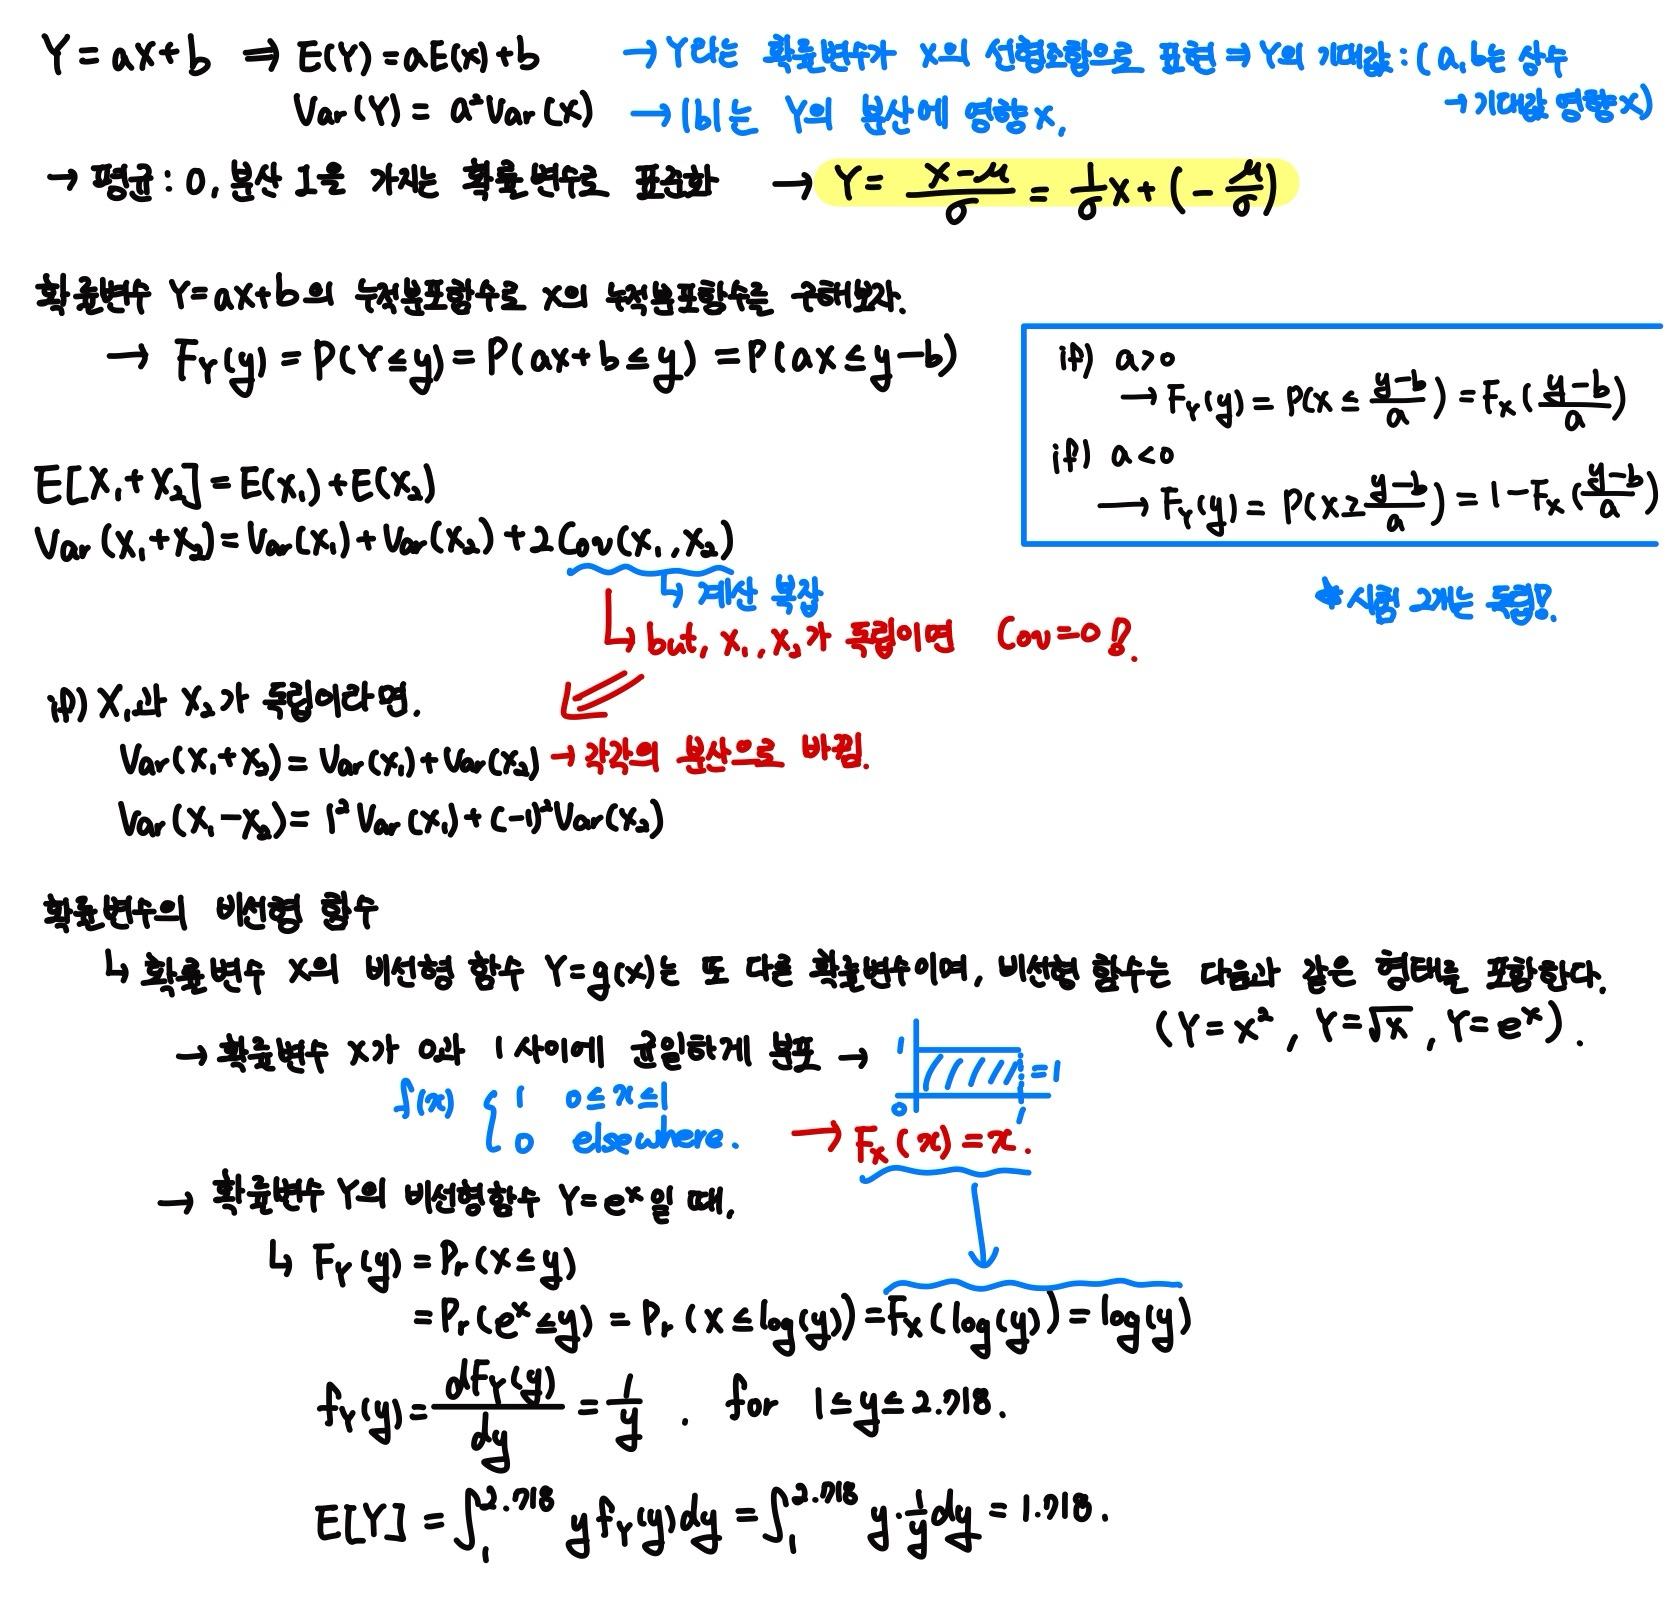 Y = aX+b ⇒ E(Y) = aE(X)+b → Y라는 확률변수가 X의 선형조합으로 표현 ⇒ Y의 기대값 : ( a, b는 상수
→ 기대값 영향 X)
Var(Y) = a²Var(X) → |b|는 Y의 분산에 영향 X,
→ 평균 : 0, 분산 1을 가지는 확률변수로 표준화 → Y = (X-μ)/σ = 1/σ X + (- μ/σ)
확률변수 Y=aX+b의 누적분포함수로 X의 누적분포함수를 구해보자.
→ F_Y(y) = P(Y≤y) = P(aX+b≤y) = P(aX≤y-b)
if) a>0
→ F_Y(y) = P(X ≤ (y-b)/a) = F_X((y-b)/a)
if) a<0
→ F_Y(y) = P(X≥(y-b)/a) = 1-F_X((y-b)/a)
E[X₁+X₂] = E(X₁)+E(X₂)
Var(X₁+X₂) = Var(X₁)+Var(X₂)+2Cov(X₁,X₂)
↳ 계산 복잡
* 시험 2개는 독립!.
↳ but, X₁, X₂가 독립이면 Cov=0!.
if) X₁과 X₂가 독립이라면.
Var(X₁+X₂) = Var(X₁)+Var(X₂) → 각각의 분산으로 바뀜.
Var(X₁-X₂) = 1²Var(X₁)+(-1)²Var(X₂)
확률변수의 비선형 함수
↳ 확률변수 X의 비선형 함수 Y=g(x)는 또 다른 확률변수이며, 비선형 함수는 다음과 같은 형태를 포함한다.
(Y=x², Y=√x, Y=e^x).
→ 확률변수 X가 0과 1 사이에 균일하게 분포 →
1
=1
0 1
f(x) { 1 0≤x≤1
0 elsewhere.
→ F_X(x) = x.
→ 확률변수 Y의 비선형함수 Y=e^x일 때,
↳ F_Y(y) = Pr(X≤y)
= Pr(e^x≤y) = Pr(X≤log(y)) = F_X(log(y)) = log(y)
f_Y(y) = dF_Y(y)/dy = 1/y . for 1≤y≤2.718.
E[Y] = ∫₁^2.718 y f_Y(y)dy = ∫₁^2.718 y·1/y dy = 1.718.